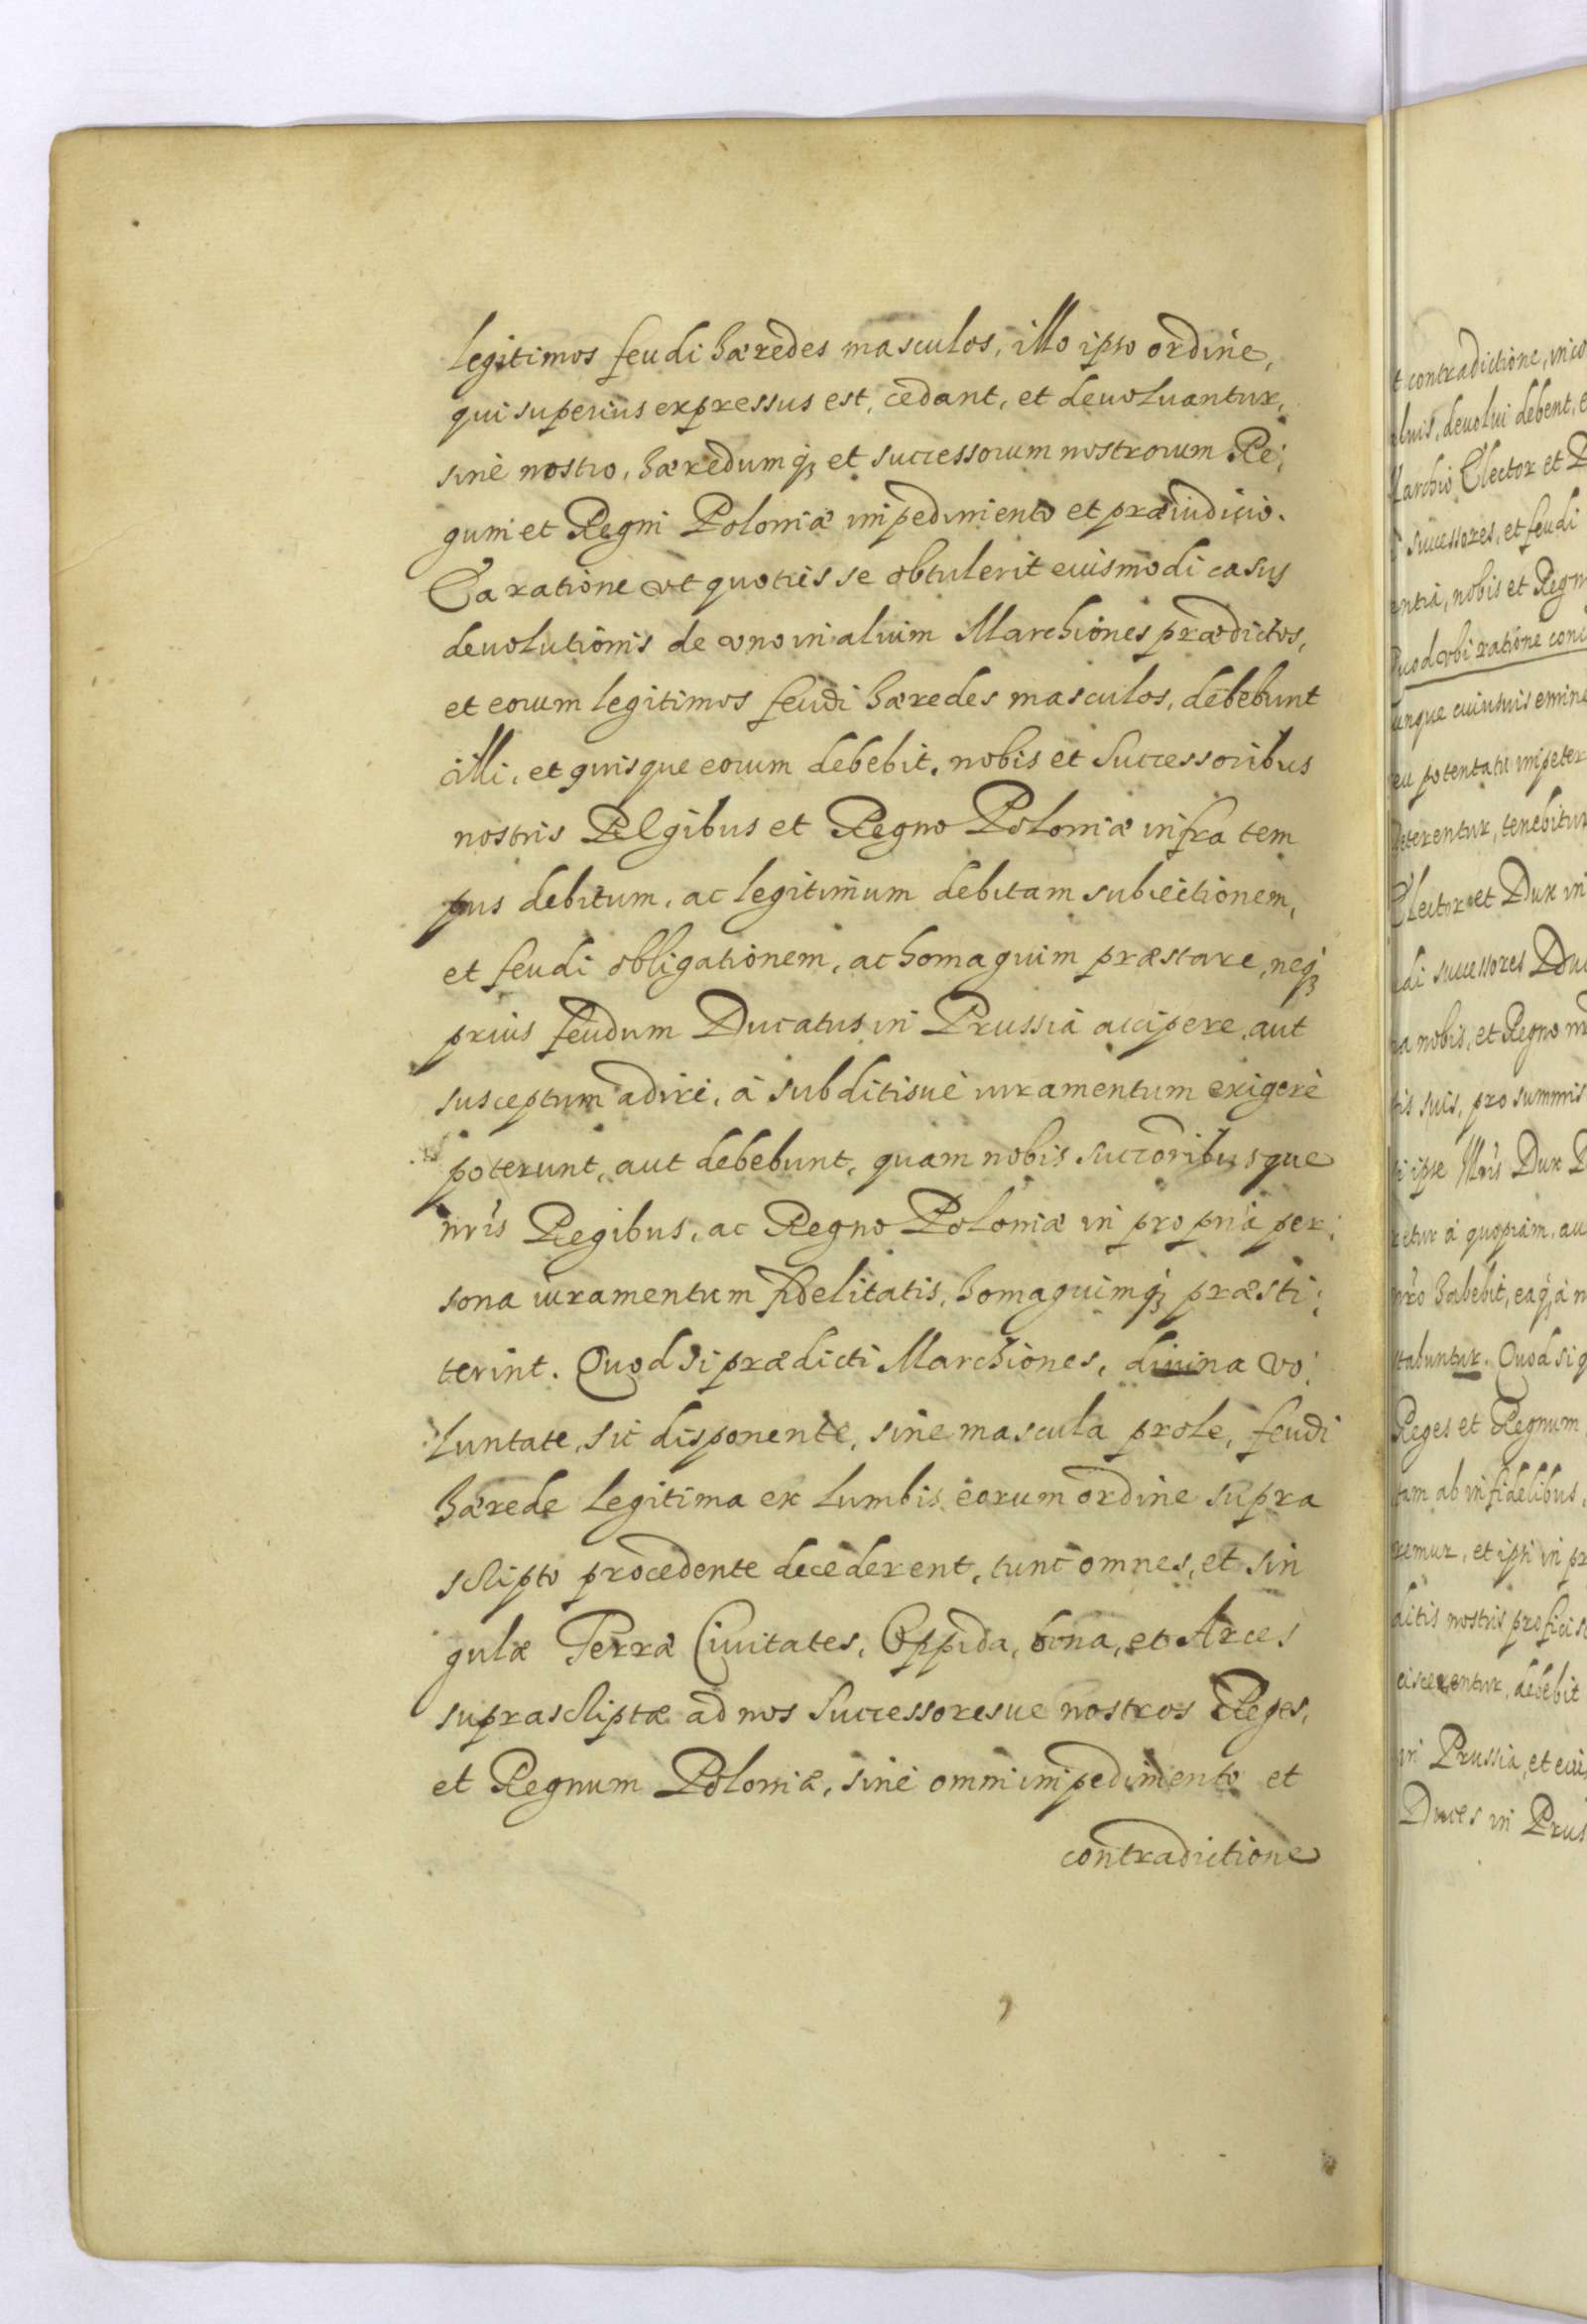 legitimos feudi hæredes masculos, illo ipso ordine,
qui superius expressus est, cedant, et deuoluantur,
sine nostro, hæredumq; et successorum nostrorum Re:
gum et Regni Poloniæ impedimento et præiudicio.
Ea ratione vt quoties se obtulerit euismodi casus
deuolutionis de vno in alium Marchiones prædictos,
et eorum legitimos feudi hæredes masculos, debebunt
illi, et quisque eorum debebit, nobis et Successoribus
nostris Regibus et Regno Poloniæ infra tem
pus debitum, ac legitimum debitam subiectionem,
et feudi obligationem, ac homagium præstare, neq;
prius feudum Ducatus in Prussia accipere, aut
susceptum adire, à subditisue iuramentum exigere
poterunt, aut debebunt, quam nobis succoribusque
nris Regibus, ac Regno Poloniæ in propria per:
sona iuramentum fidelitatis, homagiumq; præsti:
terint. Quod si prædicti Marchiones, diuina vo:
luntate, sic disponente, sine mascula prole, feudi
hærede legitima ex lumbis eorum ordine supra
scripto procedente decederent, tunc omnes, et sin
gulæ Terræ Ciuitates, Oppida, bona, et Arces
suprascriptæ ad nos Successoresue nostros Reges,
et Regnum Poloniæ, sine omni impedimento et
contradictione
t contradictione, in
deuolui debent,
Elector et
successores, et feudi
nobis et
ratione
tenebitur
Elector et Dux in
successores
nobis, et Regno
suis, pro summis
ipse Dux
à quopiam,
habebit, eaq; à
Quod si
Reges et Regnum
ab infidelibus,
et ipsi in
nostris
debebit
in Prussia, et
Duces in